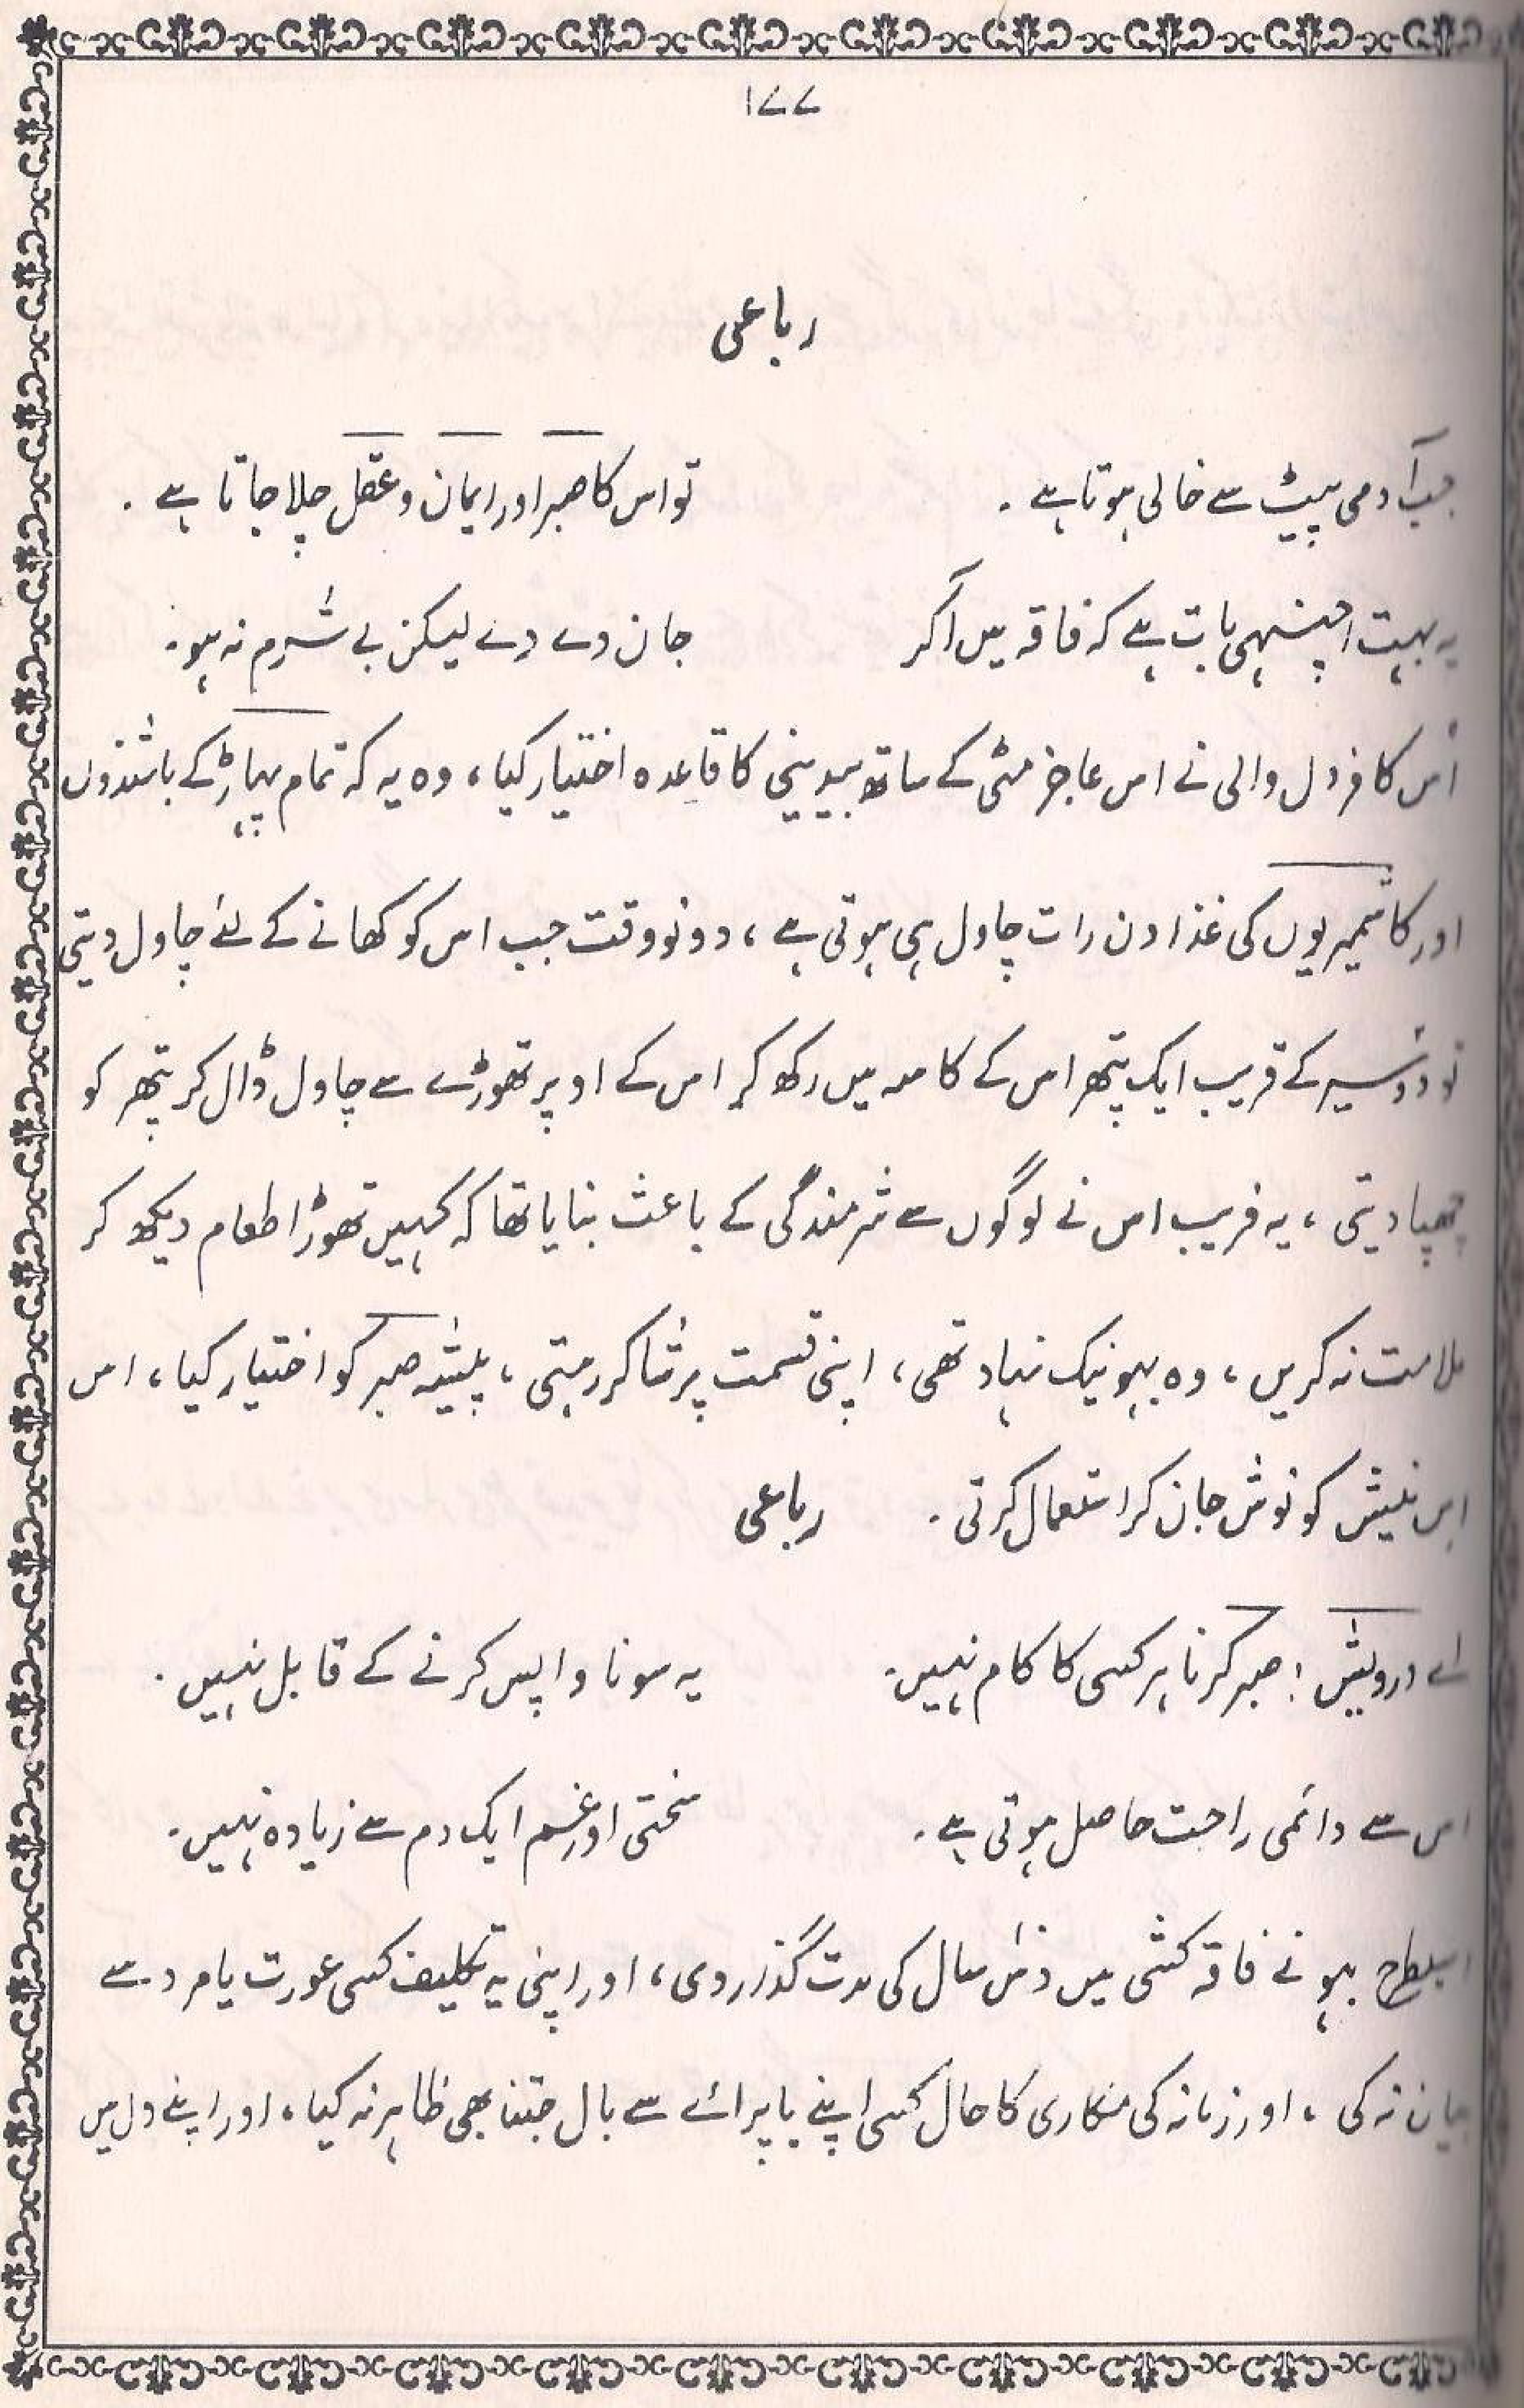 ۱۷۷
رباعی
جب آدمی پیٹ سے خالی ہوتا ہے ۔ تو اس کا صبر اور ایمان و عقل چلا جاتا ہے ۔
یہ بہت اچھی بات ہے کہ فاقہ میں اگر جان دے دے لیکن بے شرم نہ ہو ۔
اُس کافر دل والی نے اس عاجز مٹی کے ساتھ بیدینی کا قاعدہ اختیار کیا ، وہ یہ کہ تمام پہاڑ کے باشندوں
اور کاشمیریوں کی غذا دن رات چاول ہی ہوتی ہے ، دونو وقت جب اس کو کھانے کے لئے چاول دیتی
تو دو سیر کے قریب ایک پتھر اس کے کاسہ میں رکھ کر اس کے اوپر تھوڑے سے چاول ڈال کر پتھر کو
چھپا دیتی ، یہ فریب اس نے لوگوں سے شرمندگی کے باعث بنایا تھا کہ کہیں تھوڑا طعام دیکھ کر
ملامت نہ کریں ، وہ بہو نیک نہاد تھی ، اپنی قسمت پر شاکر رہتی ، پیشہ صبر کو اختیار کیا ، اس
اس نیش کو نوش جان کر استعمال کرتی ۔ رباعی
اے درویش ! صبر کرنا ہر کسی کا کام نہیں ۔ یہ سونا واپس کرنے کے قابل نہیں ۔
اس سے دائمی راحت حاصل ہوتی ہے ۔ سختی اور غم ایک دم سے زیادہ نہیں ۔
اسطرح بہو نے فاقہ کشی میں دس سال کی مدت گذر دی ، اور اپنی یہ تکلیف کسی عورت یا مرد سے
بیان نہ کی ، اور زمانہ کی مکاری کا حال کسی اپنے یا پرائے سے بال جتنا بھی ظاہر نہ کیا ، اور اپنے دل میں